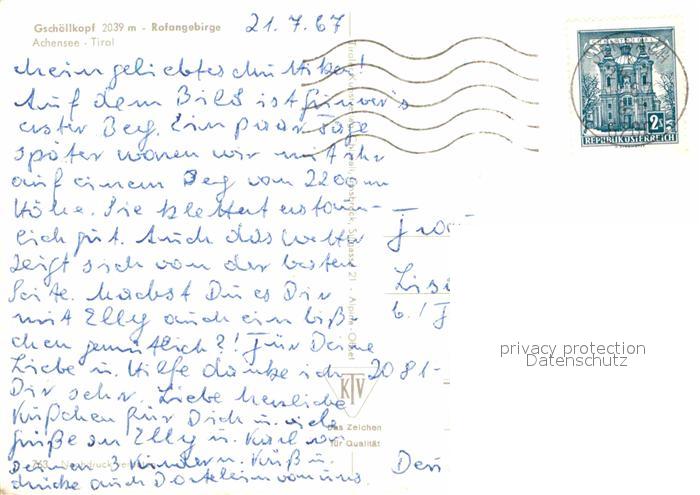 Gschöllkopf 2039 m - Rofangebirge
Achensee - Tirol
21.7.67
Mein geliebtes Muttiken!
Auf dem Bild ist
erster Berg. Ein paar Tage
später waren wir mit ihr
auf einem Berg von 2200 m
Höhe. Sie klettert erstaun-
lich gut. Auch das Wetter
zeigt sich von der besten
Seite. Machst Du es Dir
mit Elly auch ein biß-
chen gemütlich?! Für Deine
Liebe u. Hilfe danke ich
Dir sehr. Liebe herzliche
Küßchen für Dich u. viele
Grüße an Elly u. Karl u.
seinen 3 Kindern. Küß u.
drücke auch von uns.
2 S
REPUBLIK ÖSTERREICH
b. /
2081-
KTV
Das Zeichen
für Qualität
privacy protection
Datenschutz